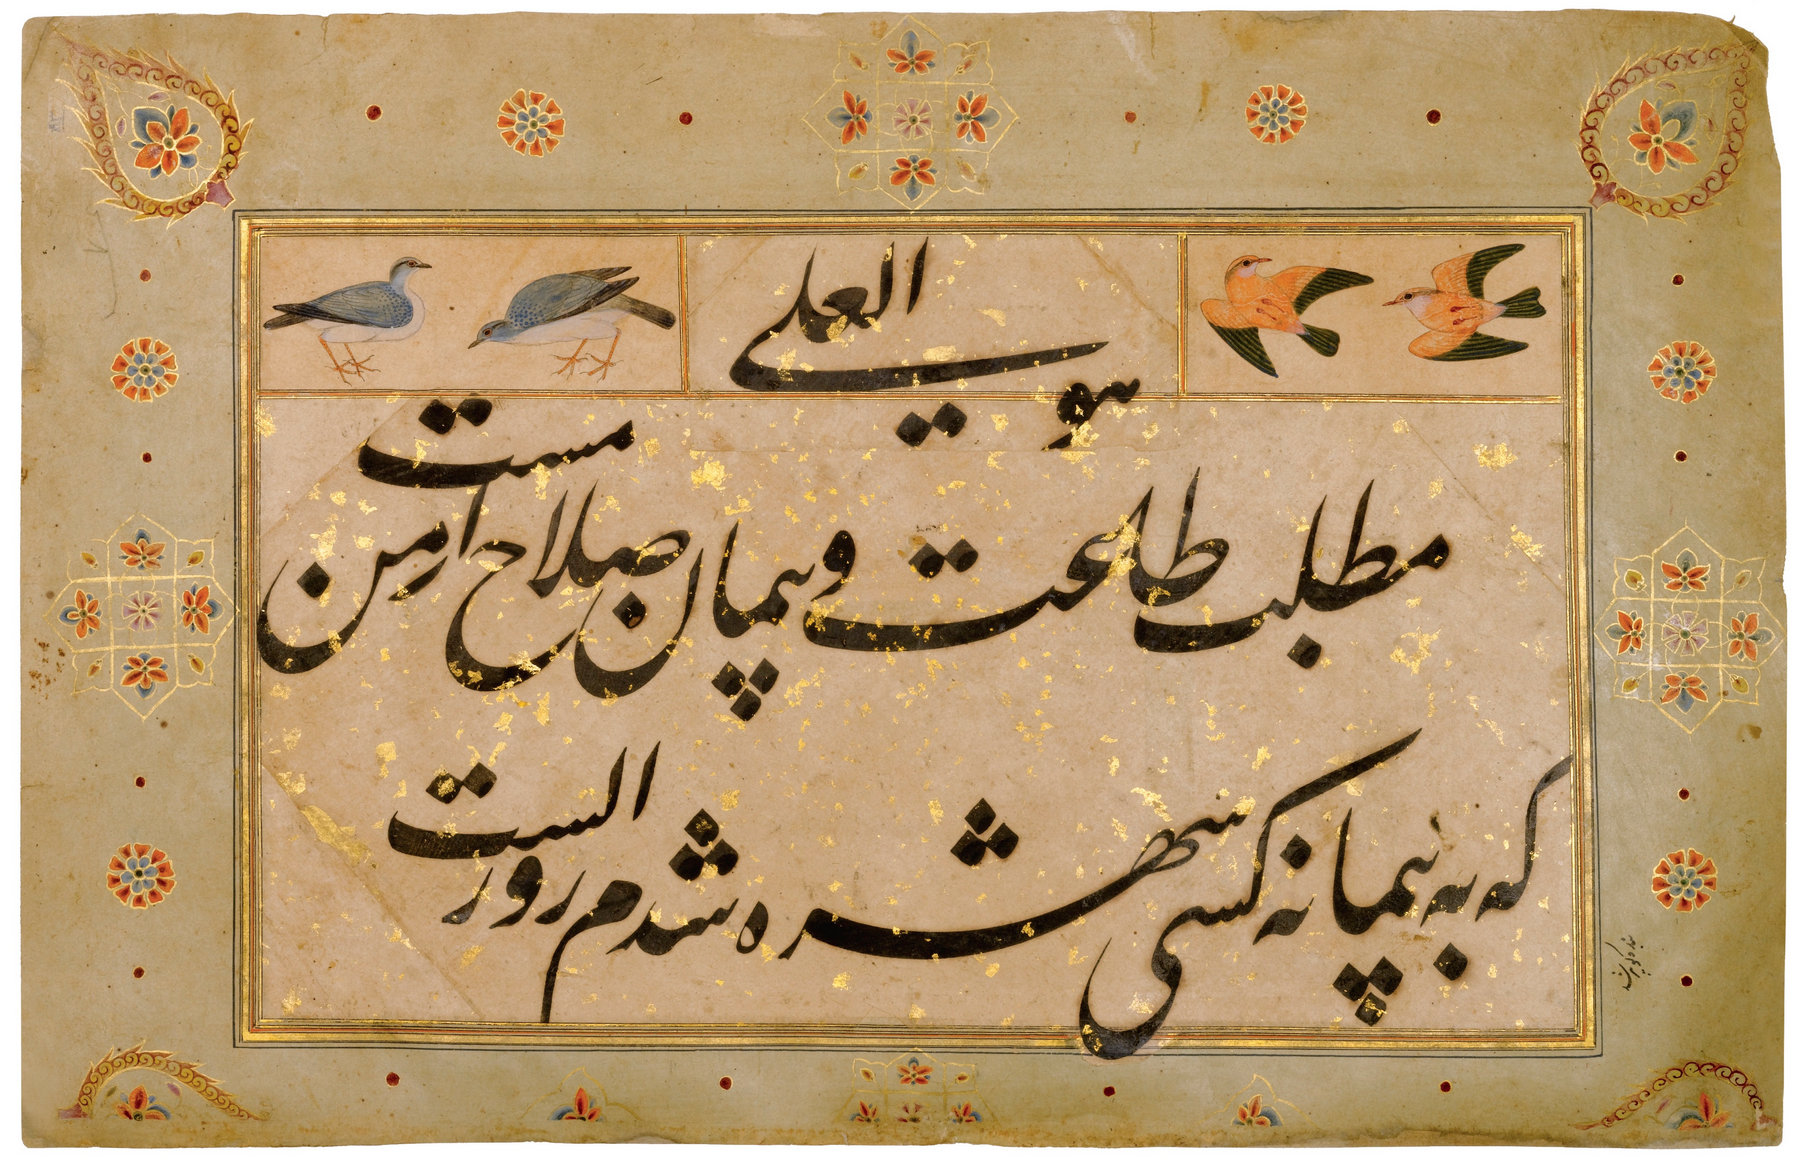 هو العلی
مطلب طاعت و پیمان صلاح از من مست
که به پیمانه کشی شهره شدم روز الست